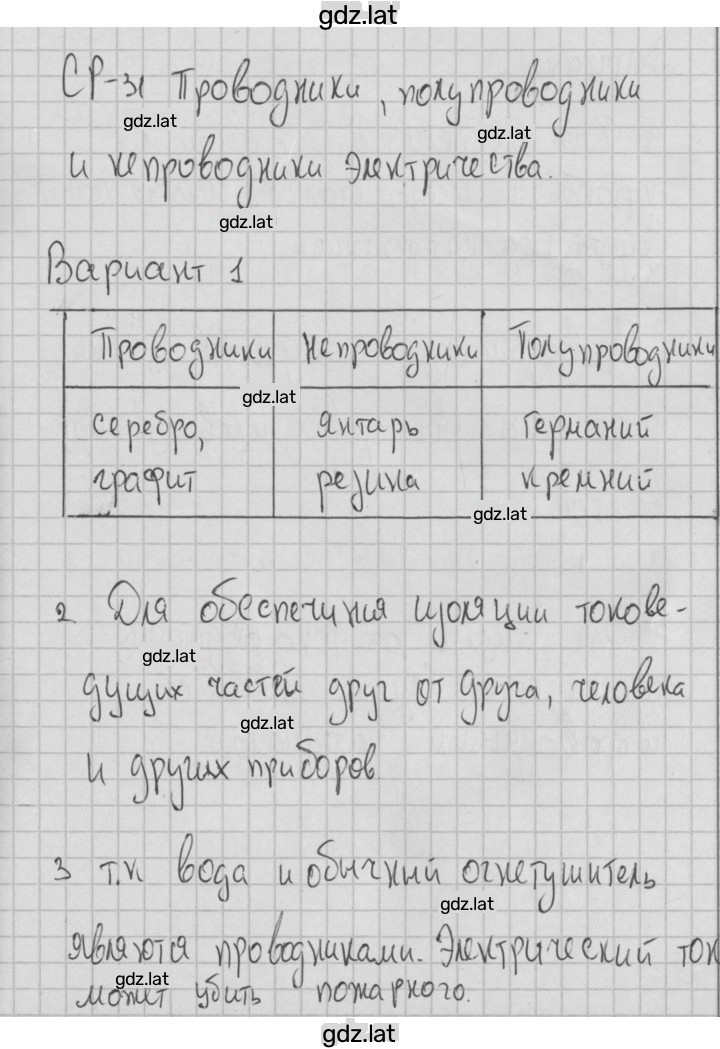 gdz.lat
СР-31 Проводники, полупроводники
gdz.lat
gdz.lat
и непроводники электричества.
gdz.lat
Вариант 1
Проводники Непроводники Полупроводники
gdz.lat
серебро, янтарь германий
графит резина кремний
gdz.lat
2 Для обеспечиния изоляции токове-
gdz.lat
дущих частей друг от друга, человека
gdz.lat
и других приборов
3 т.к вода и обычный огнетушитель
gdz.lat
являются проводниками. Электрический ток
gdz.lat
может убить пожарного.
gdz.lat